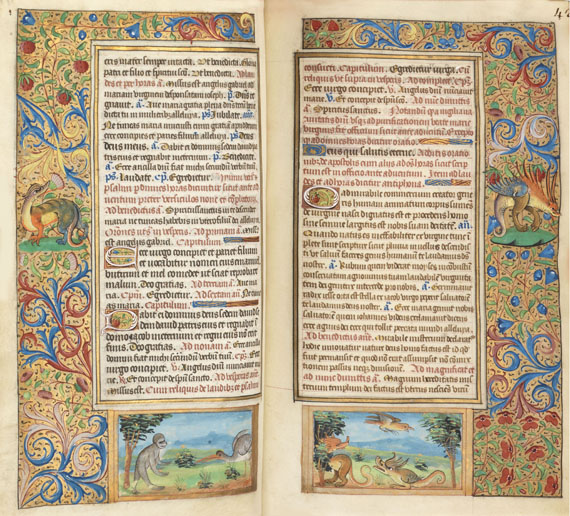 eris mater semper intacta. Ut benedicta. Gloria
patri et filio et spiritui sancto. Ut benedicta. Ad lau
des et per horas añ. Missus est angelus gabriel ad
mariam virginem desponsatam ioseph. ps. Dñs re
gnavit. a. Ave maria gratia plena dñs tecum bene
dicta tu in mulieribus alleluya. ps. Iubilate. añ.
Ne timeas maria invenisti gratiam apud dñm
ecce concipies et paries filium alleluya. ps. Deus
deus meus. a. Dabit ei dominus sedem david pa
tris eius et regnabit in eternum. ps. Benedicite.
a. Ecce ancilla domini fiat michi secundum verbum tuum.
ps. Laudate. cp. Egredietur.
Ad benedictus a. Spiritus sanctus in te descendet
maria ne timeas habebis in utero filium dei alleluya.
a. Missus
est angelus gabriel. Capitulum
Ecce virgo concipiet et pariet filium
et vocabitur nomen eius emanuel
butirum et mel comedet ut sciat reprobare
malum. Deo gratias. Ad terciam a. Ave ma
ria. Cpm. Egredietur. Ad sextam añ. Ne time
as maria. Capitulum.
Dabit ei dominus deus sedem david
dem david patris eius et regnabit in
domo iacob in eternum et regni eius non erit
finis. Deo gratias. Ad nonam a. Ecce ancilla
domini fiat michi secundum verbum tuum. cp. Ecce
virgo concipiet. v. Angelus domini nunciavit
marie. R. Et concepit de spiritu sancto. Ad vesperas añ.
Missus est. Cum reliquis de laudibus et psalmi
42
consueti. Capitulum. Egredietur virga. Cum
reliquis ut supra in vesperis.
Ecce virgo concipiet. v. Angelus domini nunciavit
marie. R. Et concepit de spiritu. Ad nunc dimittis
a. Spiritus sanctus.
Deus qui salutis eterne.
O admirabile commercium creator gene
ris humani animatum corpus sumens
de virgine nasci dignatus est et procedens homo
sine semine largitus est nobis suam deitatem. añ.
Quando natus es ineffabiliter ex virgine tunc im
plete sunt scripture sicut pluvia in vellus descendi
sti ut salvum faceres genus humanum te laudamus deus
noster. a. Rubum quem viderat moyses incombustum
conservatam agnovimus tuam laudabilem virginita
tem dei genitrix intercede pro nobis. a. Germinavit
radix iesse orta est stella ex iacob virgo peperit salvatorem
te laudamus deus noster. a. Ecce maria genuit nobis
salvatorem quem iohannes videns exclamavit dicens
ecce agnus dei ecce qui tollit peccata mundi alleluya.
Ad benedictus añ. Mirabile misterium declaratur
hodie innovantur nature deus homo factus est id quod
fuit permansit et quod non erat assumpsit non commix
tionem passus neque divisionem. Ad magnificat et
ad nunc dimittis a. Magnum hereditatis mi
sterium templum dei factus est uterus nesciens virum